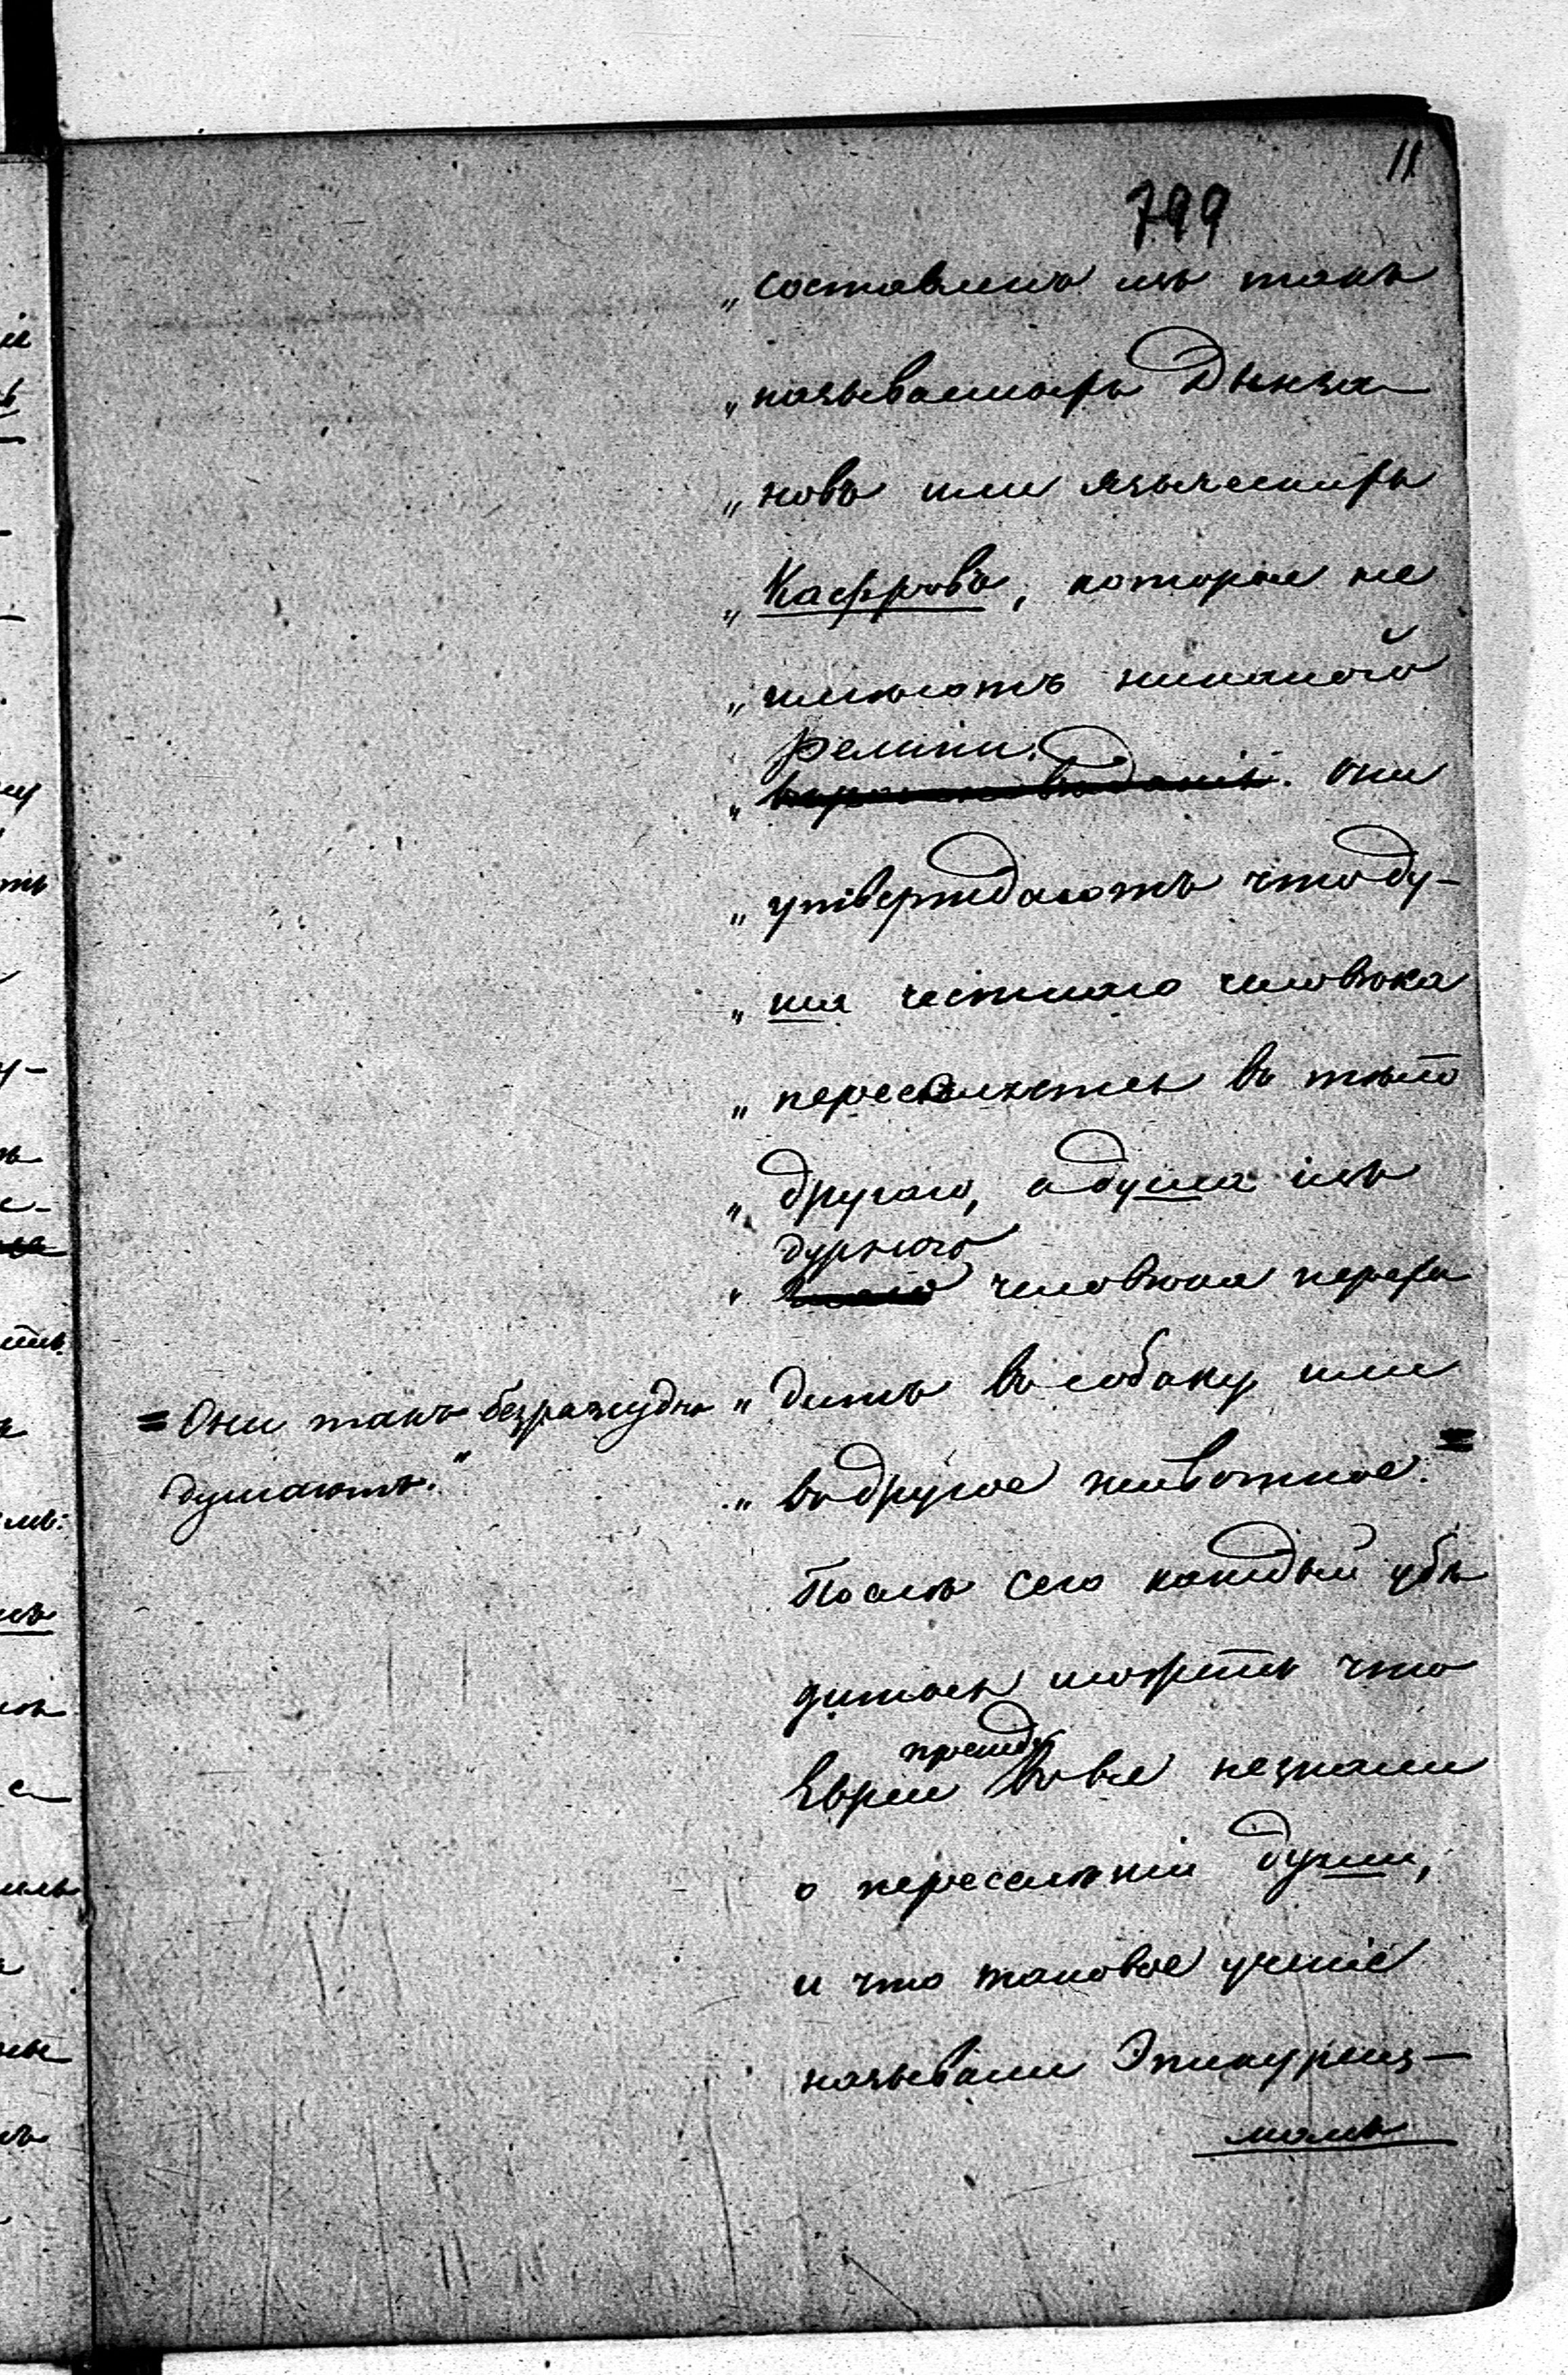 11
799
„ составленъ изъ такъ
„ называемыхъ Дынза-
„ новъ или языческихъ
„ Кафровъ, которые не
„ имѣютъ никакой
религіи.
„ Они
„ утверждаютъ что ду-
„ ша честнаго человѣка
„ переселяется въ тѣло
„ другаго, а душа изъ
дурнаго
„ человѣка перехо
„ дитъ въ собаку или
„ въ другое животное. =
= Они такъ безразсудно
думаютъ."
Послѣ сего каждый убѣ
дитьсь можетъ что
прежде
Евреи вовсе незнали
о переселѣніи души,
и что таковое ученіе
называли Эпикуреиз-
момъ